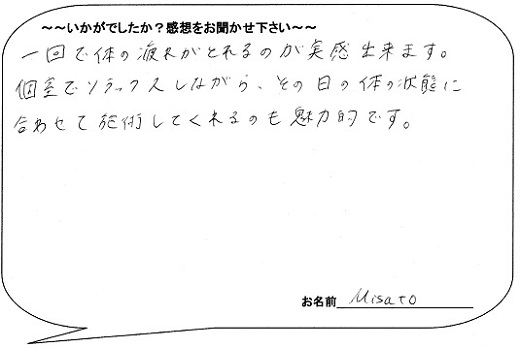 ～～いかがでしたか？感想をお聞かせ下さい～～
一回で体の疲れがとれるのが実感出来ます。
個室でリラックスしながら、その日の体の状態に
合わせて施術してくれるのも魅力的です。
お名前 Misato